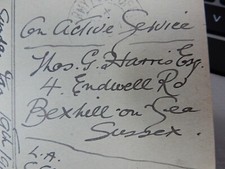 On Active Service
Thos. G. Harris Esq.
4. Endwell Rd
Bexhill-on-Sea
Sussex.
L.A.